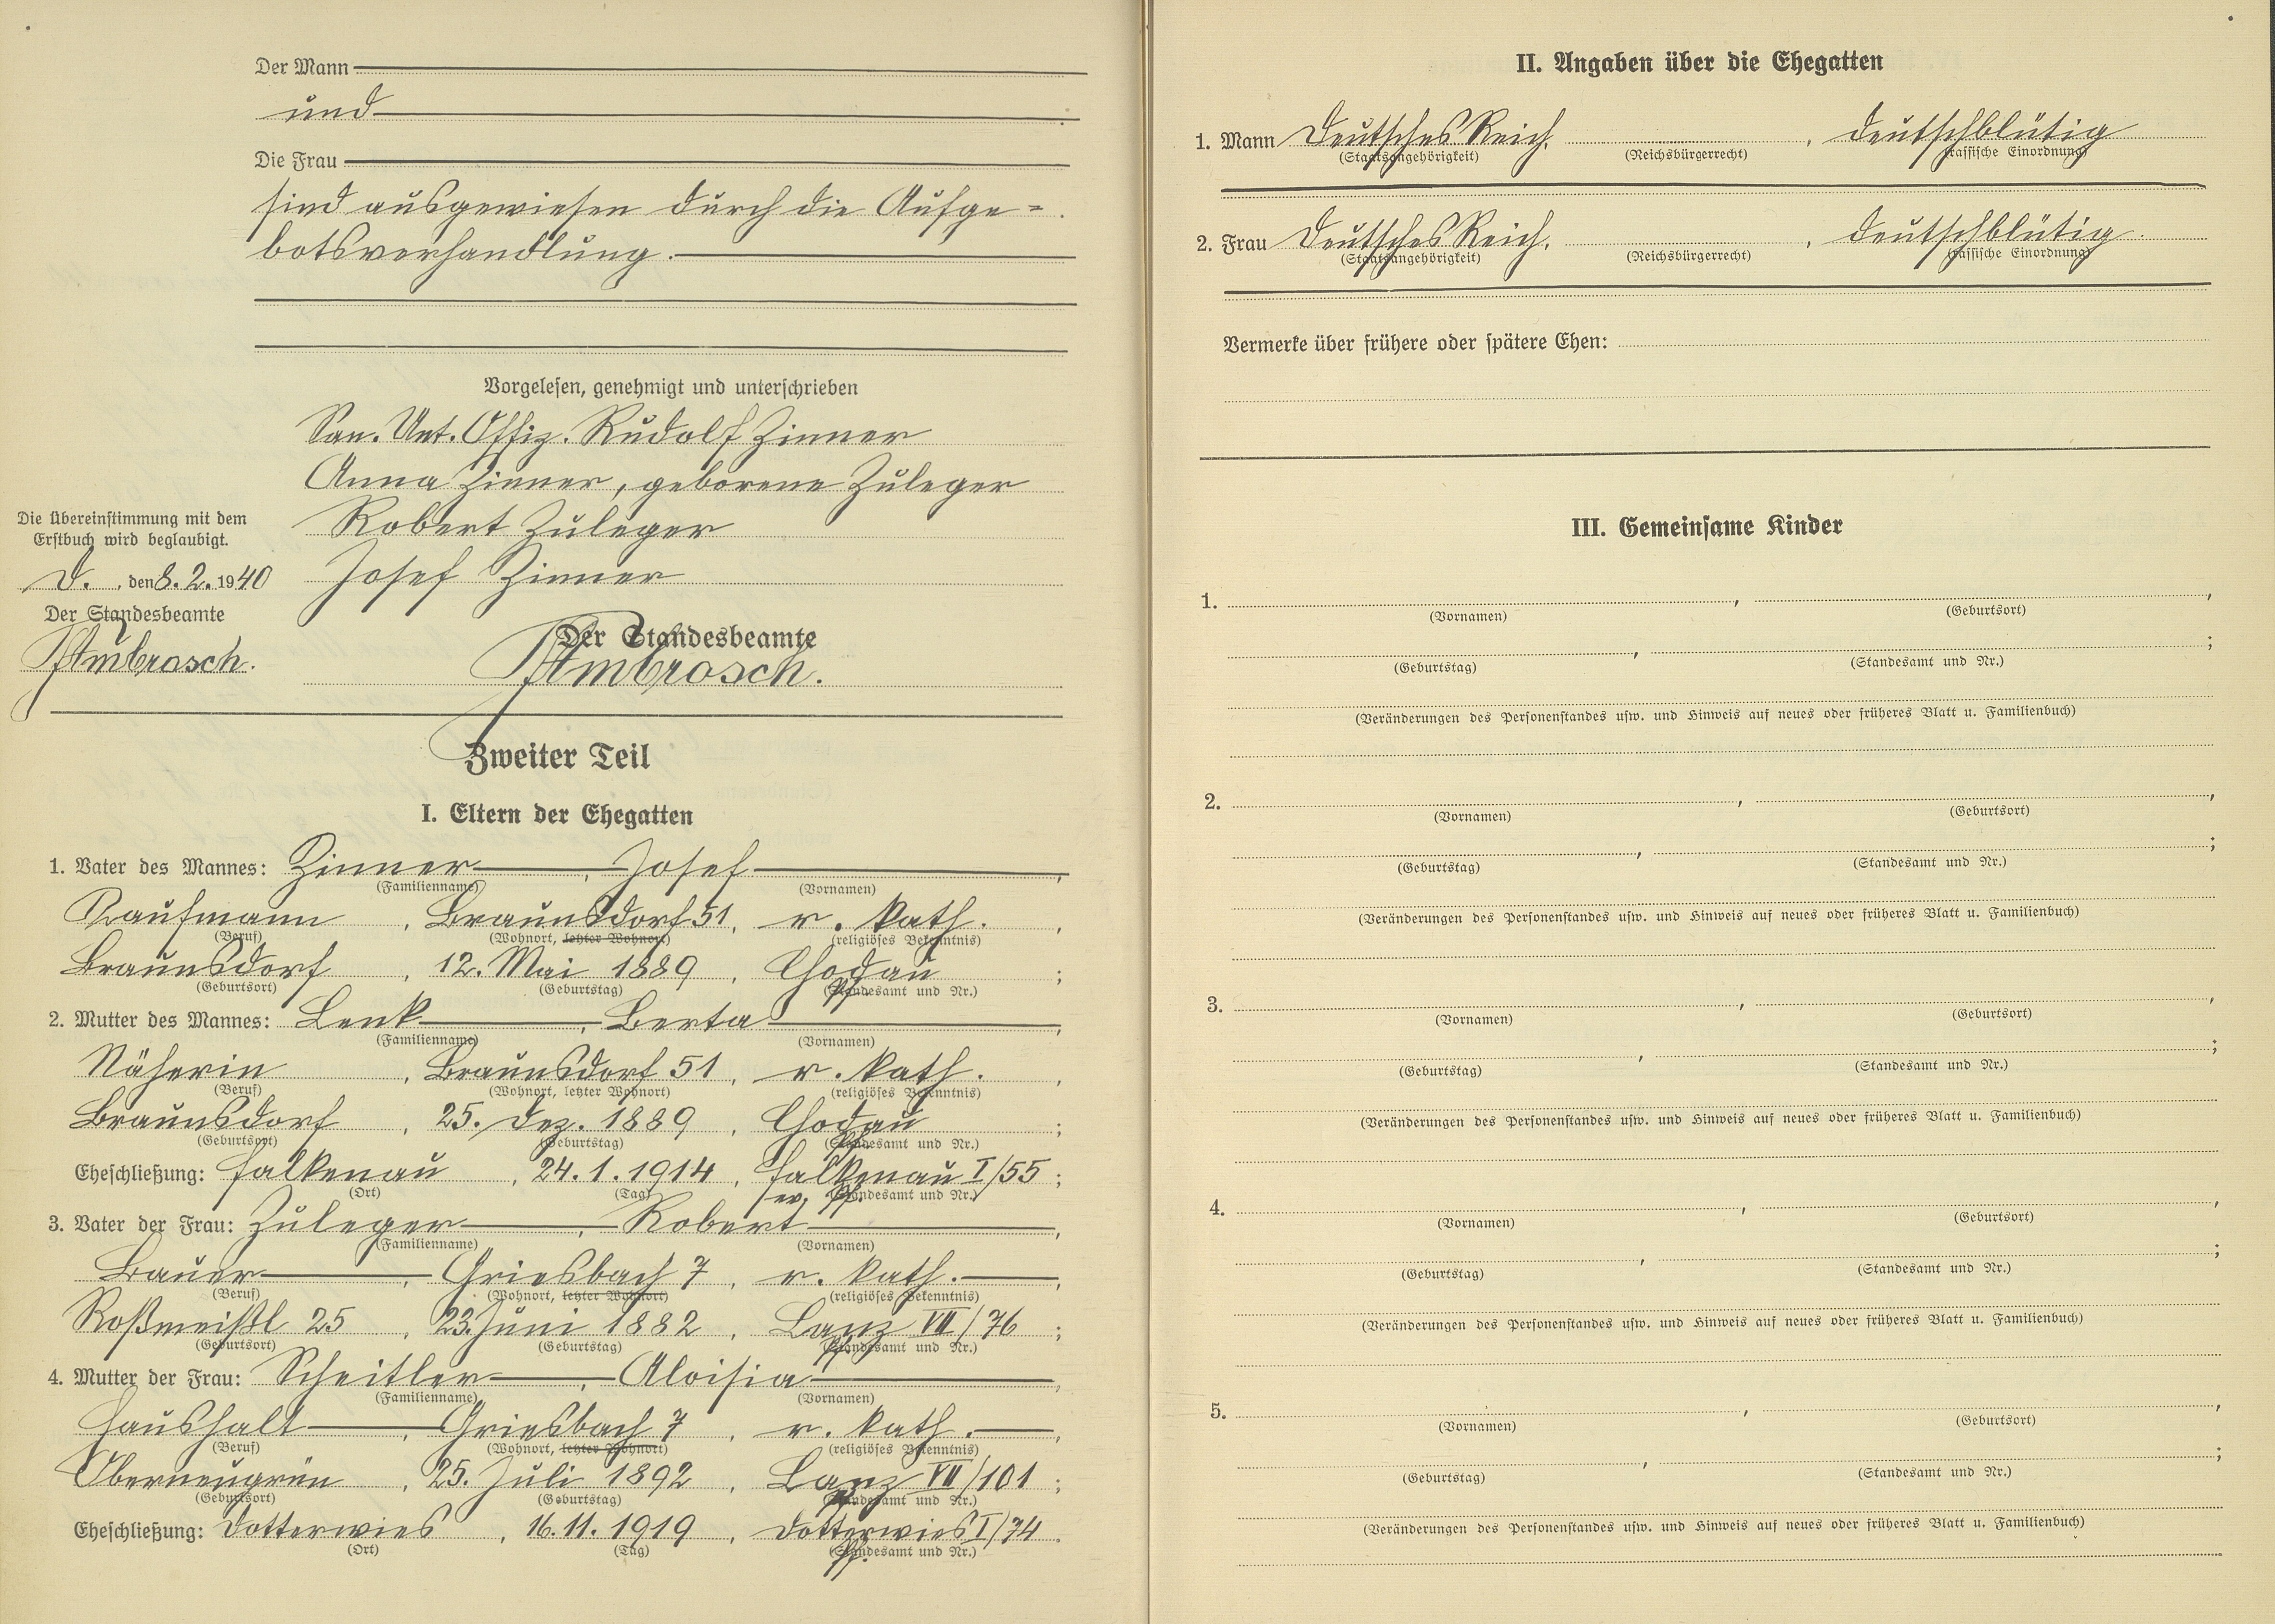 Der Mann
und
Die Frau
sind ausgewiesen durch die Aufge=
botsverhandlung.
Vorgelesen, genehmigt und unterschrieben
San. Unt. Offiz. Rudolf Zinner
Anna Zinner, geborene Zuleger
Robert Zuleger
Josef Zinner
Die Übereinstimmung mit dem
Erstbuch wird beglaubigt.
D. , den 8. 2. 1940
Der Standesbeamte
Ambrosch.
Der Standesbeamte
Ambrosch.
Zweiter Teil
I. Eltern der Ehegatten
1. Vater des Mannes: Zinner , Josef ,
(Familienname) (Vornamen)
Kaufmann , Braunsdorf 51, r. kath. ,
(Beruf) (Wohnort, letzter Wohnort) (religiöses Bekenntnis)
Braunsdorf , 12. Mai 1889 , Chodau ;
(Geburtsort) (Geburtstag) (Standesamt und Nr.)
2. Mutter des Mannes: Lenk , Berta ,
(Familienname) (Vornamen)
Näherin , Braunsdorf 51 , r. kath. ,
(Beruf) (Wohnort, letzter Wohnort) (religiöses Bekenntnis)
Braunsdorf , 25. Dez. 1889 , Chodau ;
(Geburtsort) (Geburtstag) (Standesamt und Nr.)
Eheschließung: Falkenau , 24. 1. 1914 , Falkenau I/55 ;
(Ort) (Tag) ev. Pf. (Standesamt und Nr.)
3. Vater der Frau: Zuleger , Robert ,
(Familienname) (Vornamen)
Bauer , Griesbach 7 , r. kath. ,
(Beruf) (Wohnort, letzter Wohnort) (religiöses Bekenntnis)
Roßmeißl 25 , 23. Juni 1882 , Lanz VII/76 ;
(Geburtsort) (Geburtstag) (Standesamt und Nr.)
4. Mutter der Frau: Scheitler , Aloisia ,
(Familienname) (Vornamen)
Haushalt , Griesbach 7 , r. kath. ,
(Beruf) (Wohnort, letzter Wohnort) (religiöses Bekenntnis)
Oberneugrün , 25. Juli 1892 , Lanz VII/101 ;
(Geburtsort) (Geburtstag) (Standesamt und Nr.)
Eheschließung: Dotterwies , 16. 11. 1919 , Dotterwies I/74 .
(Ort) (Tag) (Standesamt und Nr.)
II. Angaben über die Ehegatten
1. Mann Deutsches Reich, , deutschblütig
(Staatsangehörigkeit) (Reichsbürgerrecht) (rassische Einordnung)
2. Frau Deutsches Reich, , deutschblütig.
(Staatsangehörigkeit) (Reichsbürgerrecht) (rassische Einordnung)
Vermerke über frühere oder spätere Ehen:
III. Gemeinsame Kinder
1. , ,
(Vornamen) (Geburtsort)
, ;
(Geburtstag) (Standesamt und Nr.)
(Veränderungen des Personenstandes usw. und Hinweis auf neues oder früheres Blatt u. Familienbuch)
2. , ,
(Vornamen) (Geburtsort)
, ;
(Geburtstag) (Standesamt und Nr.)
(Veränderungen des Personenstandes usw. und Hinweis auf neues oder früheres Blatt u. Familienbuch)
3. , ,
(Vornamen) (Geburtsort)
, ;
(Geburtstag) (Standesamt und Nr.)
(Veränderungen des Personenstandes usw. und Hinweis auf neues oder früheres Blatt u. Familienbuch)
4. , ,
(Vornamen) (Geburtsort)
, ;
(Geburtstag) (Standesamt und Nr.)
(Veränderungen des Personenstandes usw. und Hinweis auf neues oder früheres Blatt u. Familienbuch)
5. , ,
(Vornamen) (Geburtsort)
, ;
(Geburtstag) (Standesamt und Nr.)
(Veränderungen des Personenstandes usw. und Hinweis auf neues oder früheres Blatt u. Familienbuch)